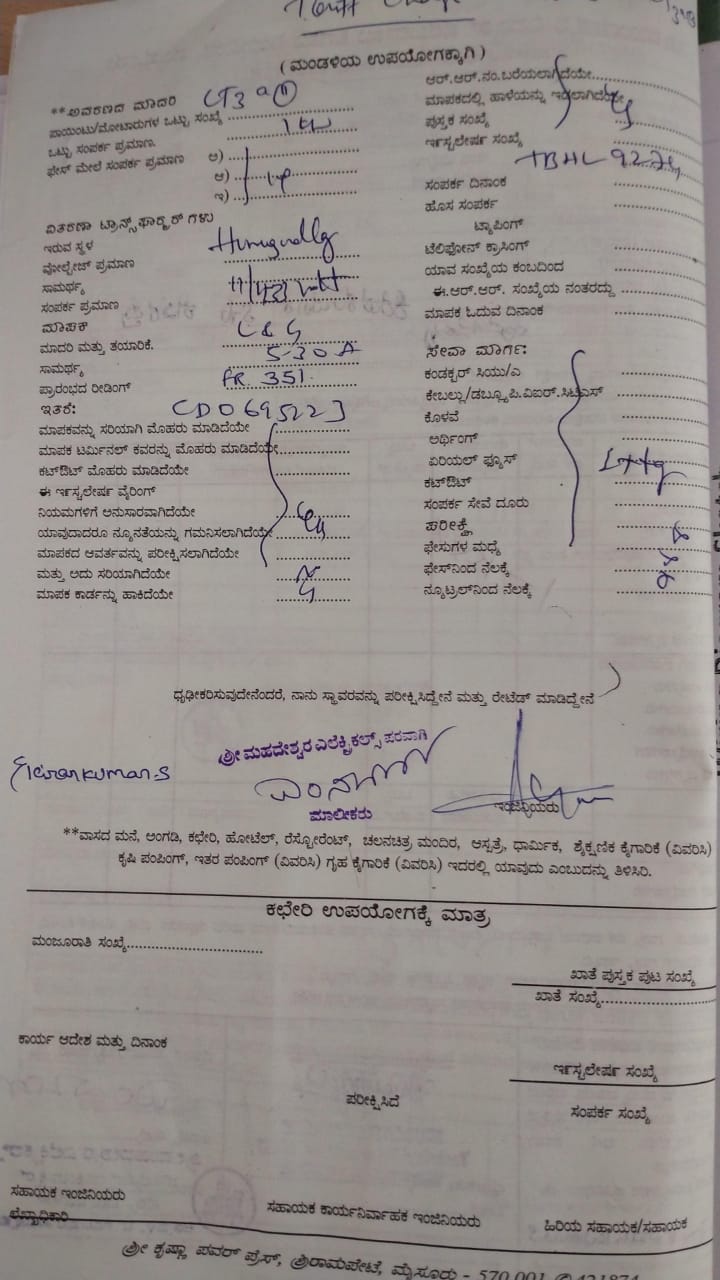 Tariff Change
( ಮಂಡಳಿಯ ಉಪಯೋಗಕ್ಕಾಗಿ )
**ಅವರಣದ ಮಾದರಿ
ಪಾಯಿಂಟು/ಮೋಟಾರುಗಳ ಒಟ್ಟು ಸಂಖ್ಯೆ
ಒಟ್ಟು ಸಂಪರ್ಕ ಪ್ರಮಾಣ.
ಫೇಸ್ ಮೇಲೆ ಸಂಪರ್ಕ ಪ್ರಮಾಣ ಅ)
ಆ)
ಇ)
ವಿತರಣಾ ಟ್ರಾನ್ಸ್‌ಫಾರ್ಮರ್ ಗಳು
ಇರುವ ಸ್ಥಳ
ವೋಲ್ಟೇಜ್ ಪ್ರಮಾಣ
ಸಾಮರ್ಥ್ಯ
ಸಂಪರ್ಕ ಪ್ರಮಾಣ
ಮಾಪಕ L&G
ಮಾದರಿ ಮತ್ತು ತಯಾರಿಕೆ. 5-30 A
ಸಾಮರ್ಥ್ಯ
ಪ್ರಾರಂಭದ ರೀಡಿಂಗ್ FR. 351.
ಇತರೆ: CD0695223
ಮಾಪಕವನ್ನು ಸರಿಯಾಗಿ ಮೊಹರು ಮಾಡಿದೆಯೇ
ಮಾಪಕ ಟರ್ಮಿನಲ್ ಕವರನ್ನು ಮೊಹರು ಮಾಡಿದೆಯೇ
ಕಟ್‌ಔಟ್ ಮೊಹರು ಮಾಡಿದೆಯೇ
ಈ ಇನ್‌ಸ್ಟಲೇಷನ್ ವೈರಿಂಗ್
ನಿಯಮಗಳಿಗೆ ಅನುಸಾರವಾಗಿದೆಯೇ
ಯಾವುದಾದರೂ ನ್ಯೂನತೆಯನ್ನು ಗಮನಿಸಲಾಗಿದೆಯೇ
ಮಾಪಕದ ಆವರ್ತವನ್ನು ಪರೀಕ್ಷಿಸಲಾಗಿದೆಯೇ
ಮತ್ತು ಅದು ಸರಿಯಾಗಿದೆಯೇ
ಮಾಪಕ ಕಾರ್ಡನ್ನು ಹಾಕಿದೆಯೇ
ಆರ್.ಆರ್.ನಂ.ಬರೆಯಲಾಗಿದೆಯೇ
ಮಾಪಕದಲ್ಲಿ ಹಾಳೆಯನ್ನು ಇಡಲಾಗಿದೆಯೇ
ಪುಸ್ತಕ ಸಂಖ್ಯೆ
ಇನ್‌ಸ್ಟಲೇಷನ್ ಸಂಖ್ಯೆ
ಸಂಪರ್ಕ ದಿನಾಂಕ
ಹೊಸ ಸಂಪರ್ಕ
ಟ್ಯಾಪಿಂಗ್
ಟೆಲಿಫೋನ್ ಕ್ರಾಸಿಂಗ್
ಯಾವ ಸಂಖ್ಯೆಯ ಕಂಬದಿಂದ
ಈ.ಆರ್.ಆರ್. ಸಂಖ್ಯೆಯ ನಂತರದ್ದು
ಮಾಪಕ ಓದುವ ದಿನಾಂಕ
ಸೇವಾ ಮಾರ್ಗ:
ಕಂಡಕ್ಟರ್ ಸಿಯು/ಎ
ಕೇಬಲ್ಲು/ಡಬ್ಲ್ಯೂ.ಪಿ.ವಿಐಆರ್.ಸಿಟಿಎಸ್
ಕೊಳವೆ
ಅರ್ಥಿಂಗ್
ಏರಿಯಲ್ ಫ್ಯೂಸ್
ಕಟ್‌ಔಟ್
ಸಂಪರ್ಕ ಸೇವೆ ದೂರು
ಪರೀಕ್ಷೆ
ಫೇಸುಗಳ ಮಧ್ಯೆ
ಫೇಸ್‌ನಿಂದ ನೆಲಕ್ಕೆ
ನ್ಯೂಟ್ರಲ್‌ನಿಂದ ನೆಲಕ್ಕೆ
ಧೃಢೀಕರಿಸುವುದೇನೆಂದರೆ, ನಾನು ಸ್ಥಾವರವನ್ನು ಪರೀಕ್ಷಿಸಿದ್ದೇನೆ ಮತ್ತು ರೇಟೆಡ್ ಮಾಡಿದ್ದೇನೆ
ಶ್ರೀ ಮಹದೇಶ್ವರ ಎಲೆಕ್ಟ್ರಿಕಲ್ಸ್ ಪರವಾಗಿ
ಮಾಲೀಕರು
ಇಂಜಿನಿಯರು
**ವಾಸದ ಮನೆ, ಅಂಗಡಿ, ಕಛೇರಿ, ಹೋಟೆಲ್, ರೆಸ್ಟೋರೆಂಟ್, ಚಲನಚಿತ್ರ ಮಂದಿರ, ಆಸ್ಪತ್ರೆ, ಧಾರ್ಮಿಕ, ಶೈಕ್ಷಣಿಕ ಕೈಗಾರಿಕೆ (ವಿವರಿಸಿ)
ಕೃಷಿ ಪಂಪಿಂಗ್, ಇತರ ಪಂಪಿಂಗ್ (ವಿವರಿಸಿ) ಗೃಹ ಕೈಗಾರಿಕೆ (ವಿವರಿಸಿ) ಇದರಲ್ಲಿ ಯಾವುದು ಎಂಬುದನ್ನು ತಿಳಿಸಿರಿ.
ಕಛೇರಿ ಉಪಯೋಗಕ್ಕೆ ಮಾತ್ರ
ಮಂಜೂರಾತಿ ಸಂಖ್ಯೆ
ಖಾತೆ ಪುಸ್ತಕ ಪುಟ ಸಂಖ್ಯೆ
ಖಾತೆ ಸಂಖ್ಯೆ
ಕಾರ್ಯ ಆದೇಶ ಮತ್ತು ದಿನಾಂಕ
ಇನ್‌ಸ್ಟಲೇಷನ್ ಸಂಖ್ಯೆ
ಪರೀಕ್ಷಿಸಿದೆ
ಸಂಪರ್ಕ ಸಂಖ್ಯೆ
ಸಹಾಯಕ ಇಂಜಿನಿಯರು
ಲೆಖ್ಖಾಧಿಕಾರಿ
ಸಹಾಯಕ ಕಾರ್ಯನಿರ್ವಾಹಕ ಇಂಜಿನಿಯರು
ಹಿರಿಯ ಸಹಾಯಕ/ಸಹಾಯಕ
ಶ್ರೀ ಕೃಷ್ಣಾ ಪವರ್ ಪ್ರೆಸ್, ಶ್ರೀರಾಮಪೇಟೆ, ಮೈಸೂರು - 570 001